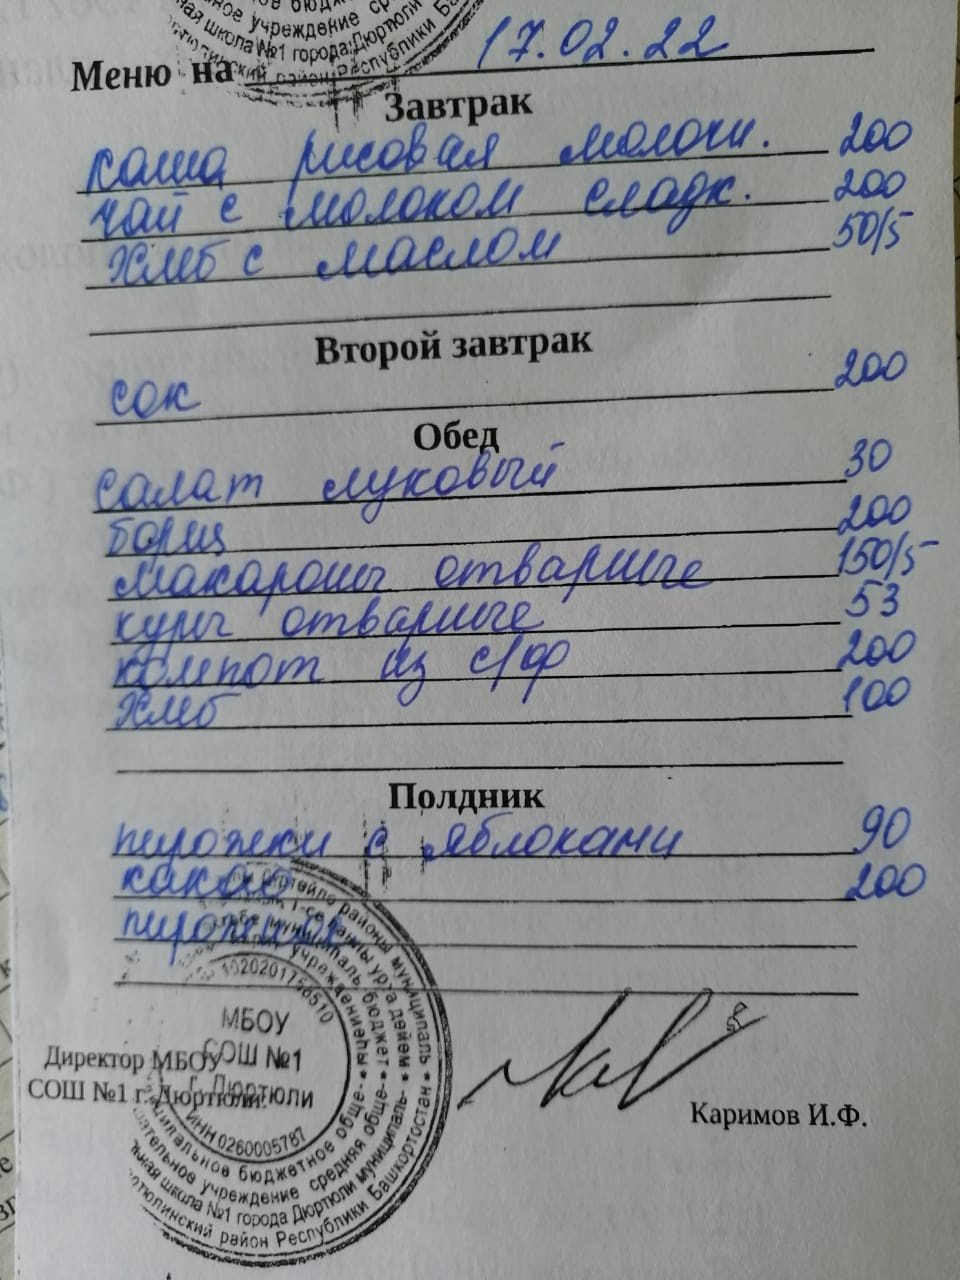 Меню на 17.02.22
Завтрак
каша рисовая молочн. 200
чай с молоком сладк. 200
хлеб с маслом 50/5
Второй завтрак
сок 200
Обед
салат луковый 30
борщ 200
макароны отварные 150/5
куры отварные 53
компот из с/ф 200
хлеб 100
Полдник
пирожки с яблоками 90
какао 200
МБОУ
СОШ №1
г. Дюртюли
ИНН 0260005787
Директор МБОУ
СОШ №1 г. Дюртюли:
Каримов И.Ф.